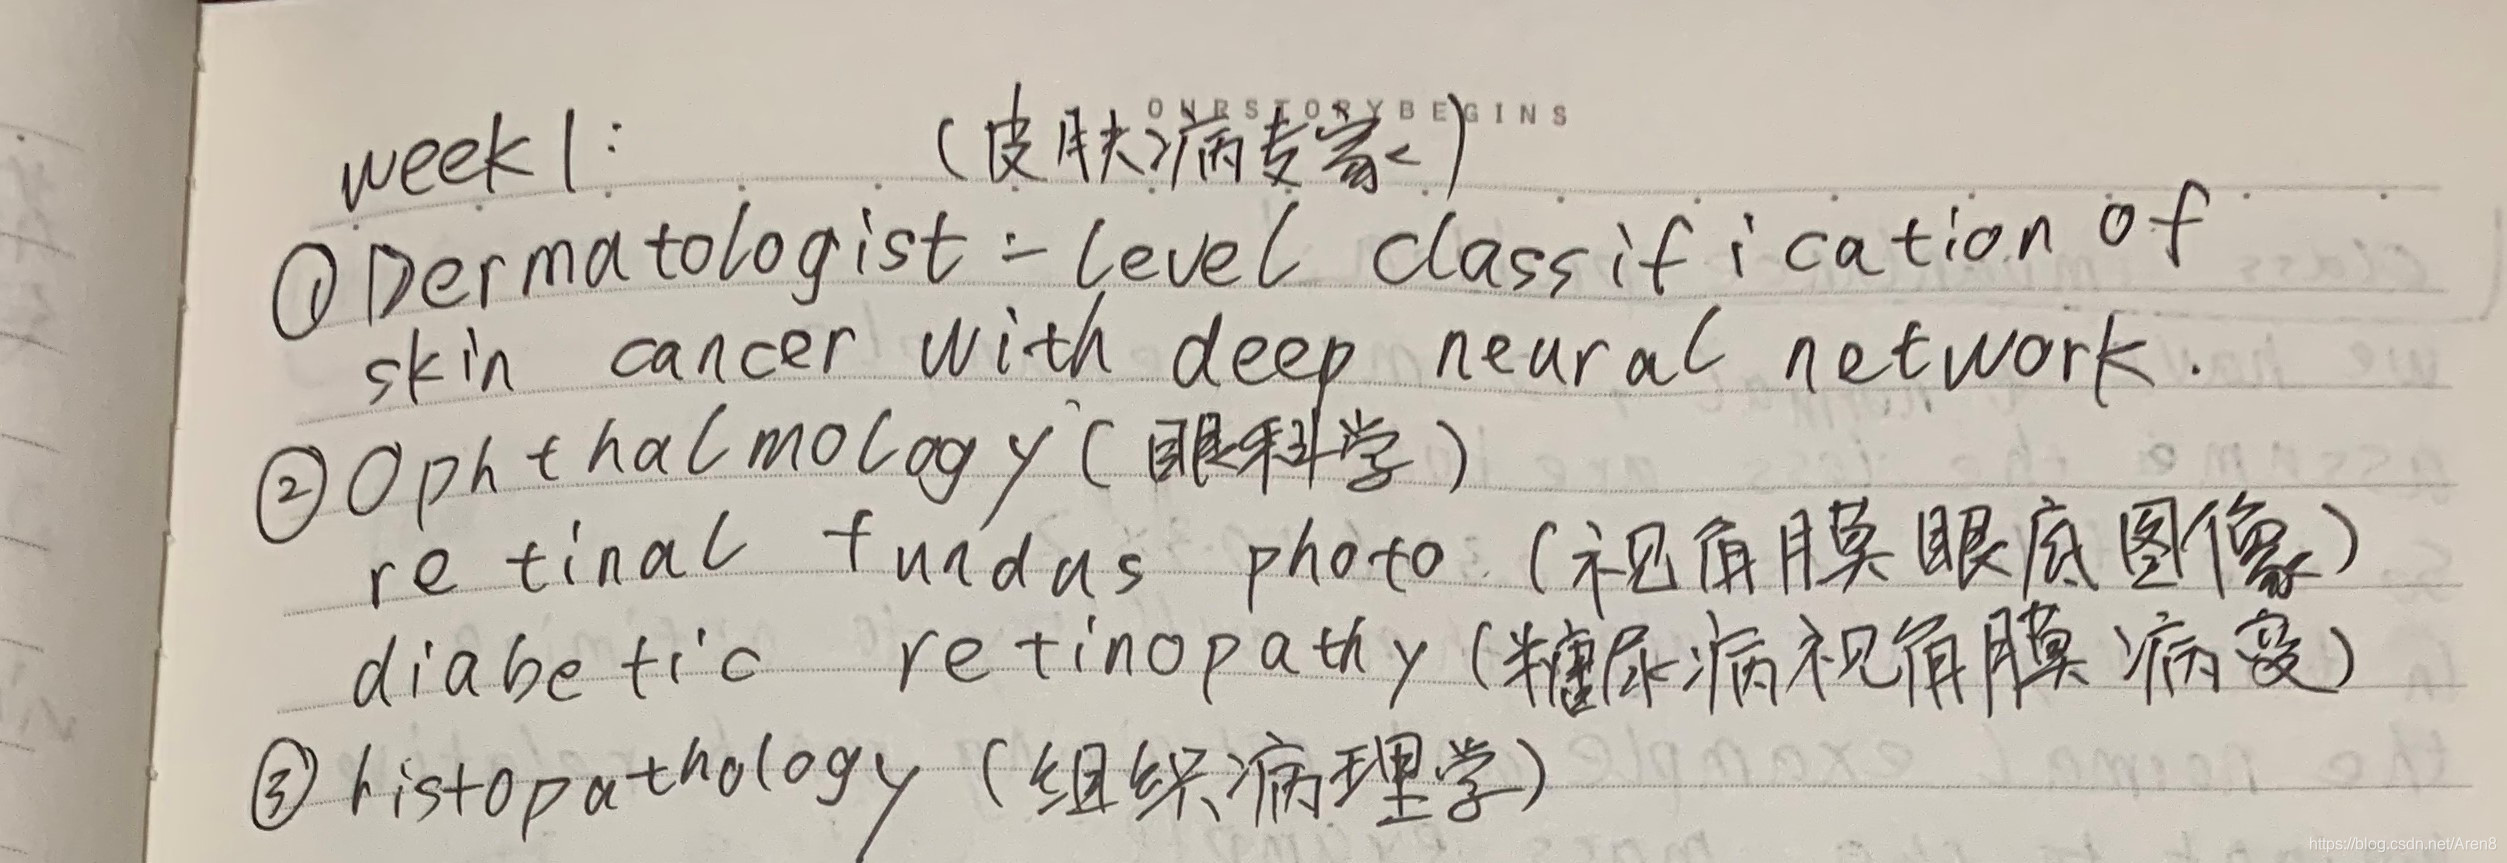 ONRSTORYBEGINS
week1: (皮肤病专家)
①Dermatologist-level classification of
skin cancer with deep neural network.
②Ophthalmology(眼科学)
retinal fundus photo (视角膜眼底图像)
diabetic retinopathy(糖尿病视角膜病变)
③histopathology (组织病理学)
https://blog.csdn.net/Aren8